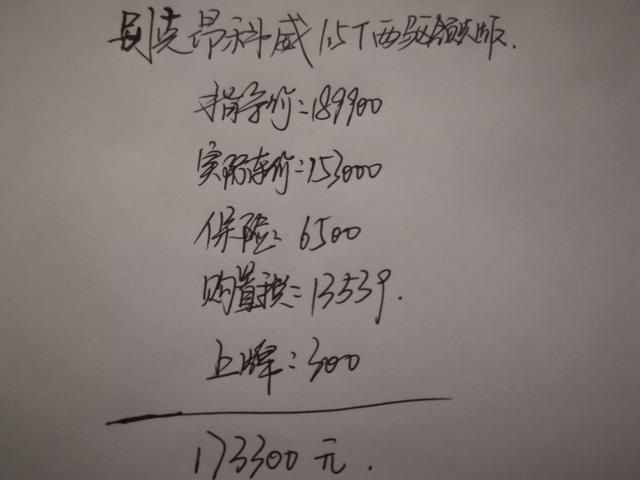 别克昂科威1.5T两驱领先版.
指导价:189900
实际车价:153000
保险:6500
购置税:13539.
上牌:300
173300元.